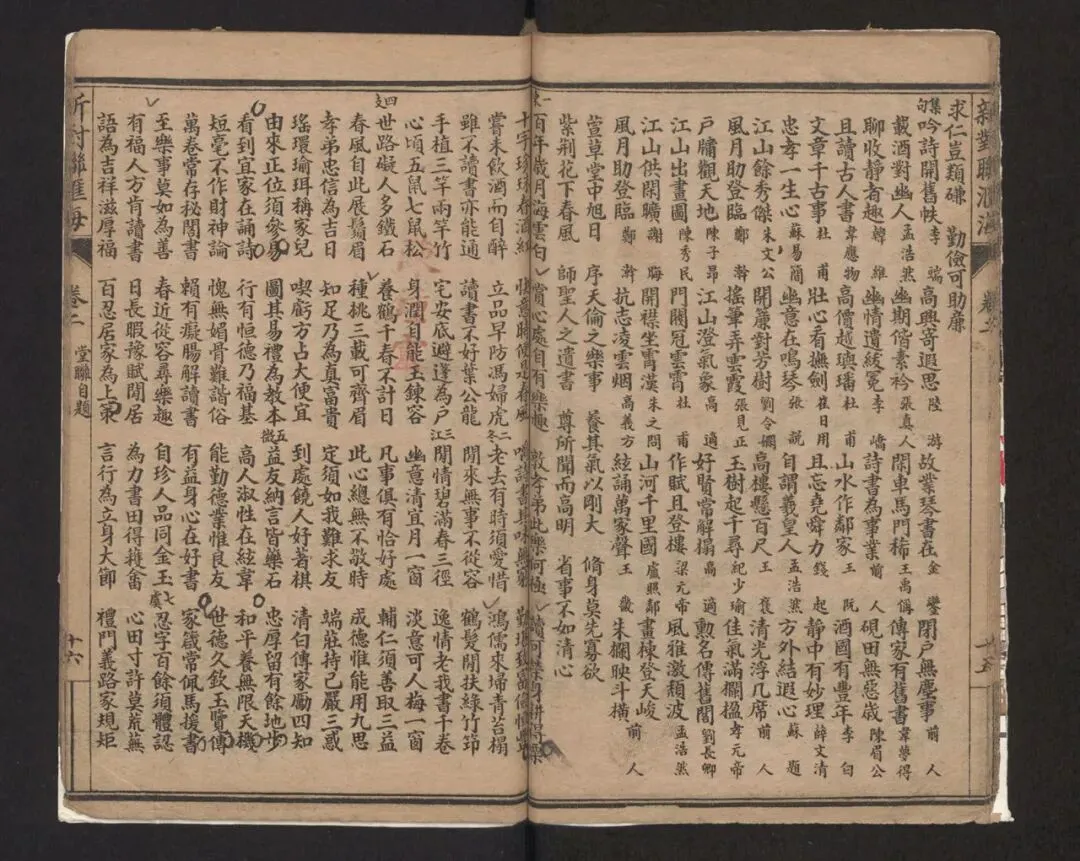 新對聯滙海 卷二 十五
求仁豈類磏 勤儉可助廉
集句 吟詩開舊帙 李端 高興寄遐思 陸游 故業琴書在 金鑾 閉戶無塵事 前人
載酒對幽人 孟浩然 幽期偕素衿 張真人 閑車馬門稀 王禹偁 傳家有舊書 韋夢得
聊收靜有趣 韓維 幽情遺紱冕 李嶠 詩書為事業 前人 硯田無惡歳 陳眉公
且讀古人書 韋應物 高價越璵璠 杜甫 山水作鄰家 王阮 酒國有豐年 李白
文章千古事 杜甫 壯心看撫劍 崔日用 且忘堯舜力 錢起 靜中有妙理 薛文清
忠孝一生心 蘇易簡 幽意在鳴琴 張說 自謂羲皇人 孟浩然 方外結遐心 蘇題
江山餘秀傑 朱文公 開簾對芳樹 劉令嫻 高樓懸百尺 王褒 清光浮几席 前人
風月助登臨 鄭幹 搖筆弄雲霞 張見正 玉樹起千尋 紀少瑜 佳氣滿欄楹 孝元帝
戶牖觀天地 陳子昂 江山澄氣象 高適 好賢常解榻 高適 勲名傳舊閣 劉長卿
江山出畫圖 陳秀民 門閥冠雲霄 杜甫 作賦且登樓 梁元帝 風雅激頹波 孟浩然
江山供閑曠 謝晦 開襟坐霄漢 朱之問 山河千里國 盧照鄰 畫棟登天峻
風月助登臨 鄭幹 抗志凌雲烟 高義方 絃誦萬家聲 王畿 朱欄映斗橫 前人
萱草堂中旭日 序天倫之樂事 養其氣以剛大 脩身莫先寡欲
紫荆花下春風 師聖人之遺書 尊所聞而高明 省事不如清心
一東 百年歲月海雲白 賞心處自有樂趣 敦孝弟此樂何極
十字珍珠春酒紅 快意時便是春風 詩書其味無窮
嘗未飲酒而自醉 立品早防馮婦虎 二冬 老去有時須愛惜 鴻儒來埽青苔榻
雖不讀書亦能通 讀書不好葉公龍 閑來無事不從容 鶴髮閑扶綠竹笻
手植三竿兩竿竹 宅安底避逢為戶 三江 閑情碧滿春三徑 逸情老我書千卷
心頃五鼠七鼠松 身潤自能玉鍊容 幽意清宜月一窗 淡意可人梅一窗
四支 世路礙人多鐵石 養鶴千春不計日 凡事俱有恰好處 輔仁須善取三益
春風自此展鬚眉 種桃三載可齊眉 此心總無不敬時 成德惟能用九思
孝弟忠信為吉日 知足乃為真富貴 定須如我難求友 端莊持己嚴三惑
瑤環瑜珥稱家兒 喫虧方占大便宜 到處饒人好著棋 清白傳家勵四知
由來正位須參易 圖其易禮為教本 五微 益友納言皆藥石 忠厚留有餘地步
看到宜家在誦詩 行有恒德乃福基 高人淑性在絃韋 和平養無限天機
短毫不作財神論 愧無媚骨難諧俗 能勤德業惟良友 世德久欽玉賢傳
萬卷常存秘閣書 賴有癡腸解讀書 有益身心在好書 家箴常佩馬援書
至樂事莫如為善 春近從容尋樂趣 自珍人品同金玉 七虞 忍字百餘須體認
有福人方肯讀書 日長暇豫賦閑居 為力書田得穫畬 心田寸許莫荒蕪
語為吉祥滋厚福 百忍居家為上策 言行為立身大節 禮門義路家規矩
新對聯滙海 卷二 堂聯自題 十六